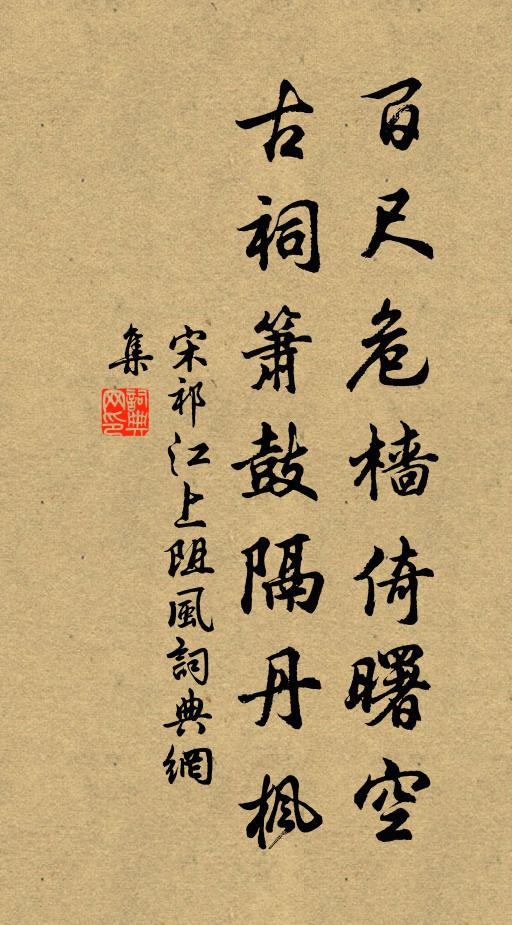 百尺危檣倚曙空
古祠簫鼓隔丹楓
宋祁江上阻風詞典網
集
詞典
网印